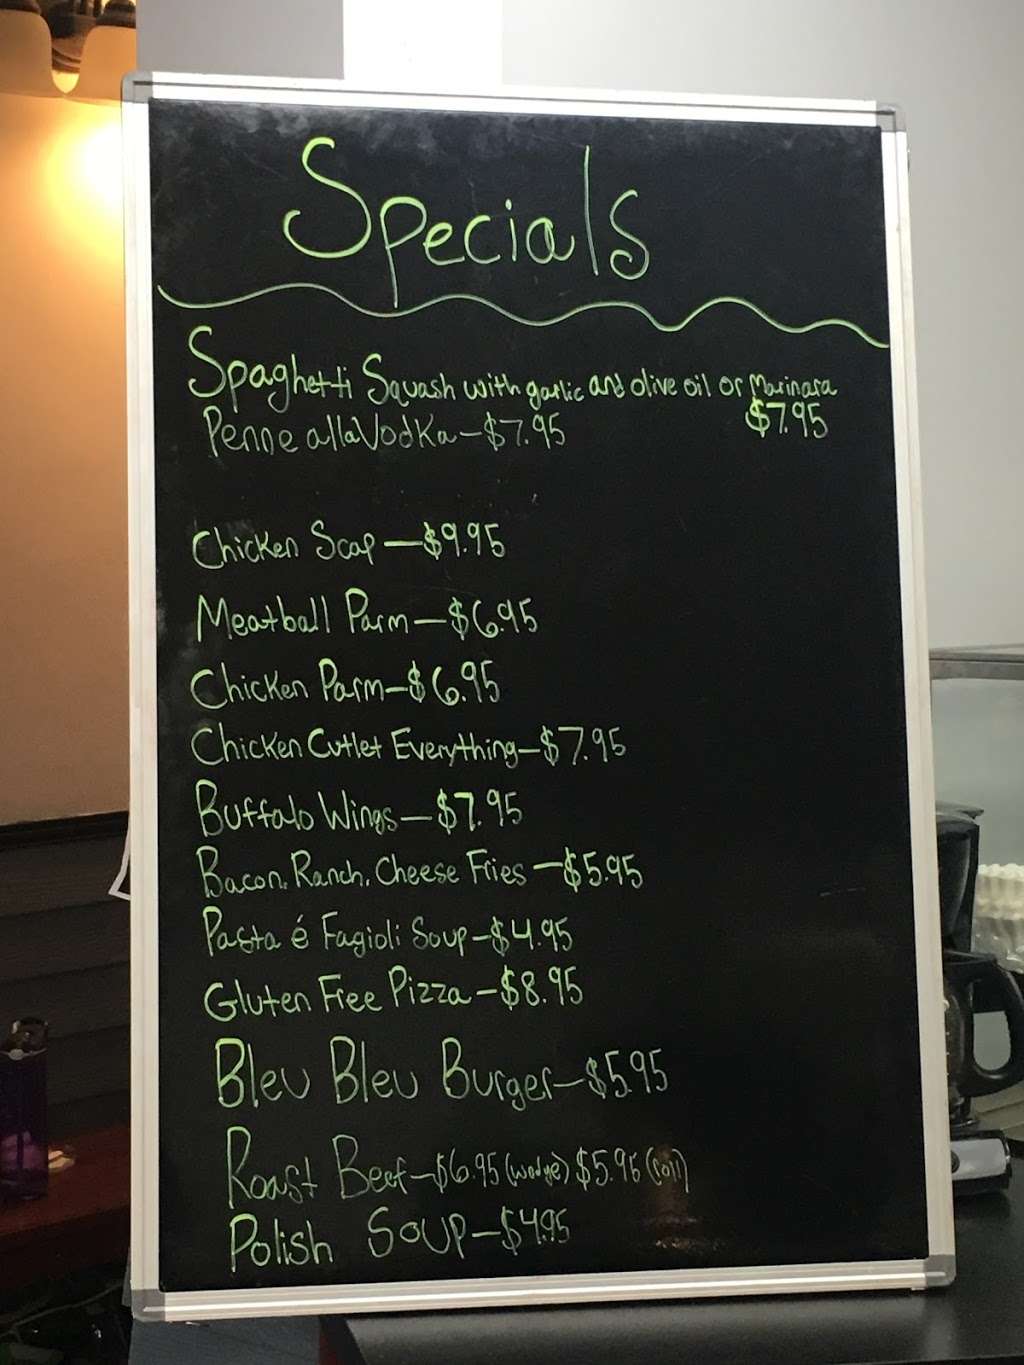 Specials
Spaghetti Squash with garlic and olive oil or Marinara
$7.95
Penne alla Vodka - $7.95
Chicken Scap - $9.95
Meatball Parm - $6.95
Chicken Parm - $6.95
Chicken Cutlet Everything - $7.95
Buffalo Wings - $7.95
Bacon, Ranch, Cheese Fries - $5.95
Pasta é Fagioli Soup - $4.95
Gluten Free Pizza - $8.95
Bleu Bleu Burger - $5.95
Roast Beef - $6.95 (wedge) $5.95 (roll)
Polish Soup - $4.95